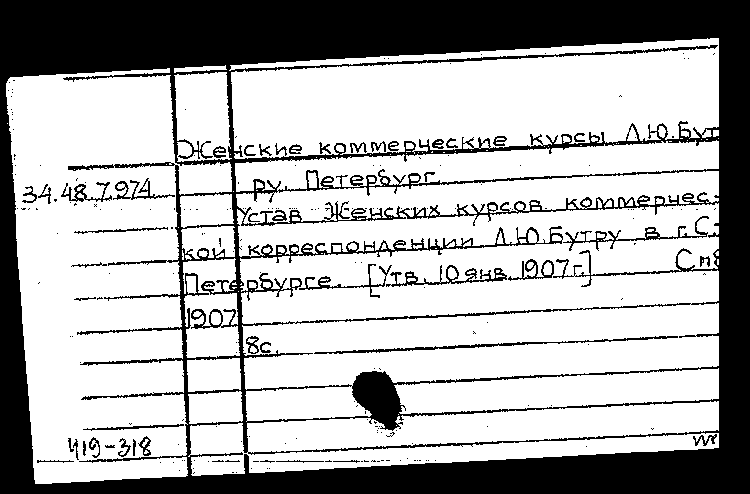 Женские коммерческие курсы Л.Ю.Бут
34.48.7.974 ру. Петербург.
Устав Женских курсов коммерчес-
кой корреспонденции Л.Ю.Бутру в г.С.-
Петербурге. [Утв. 10 янв. 1907 г.] Спб
1907
8с.
419-318